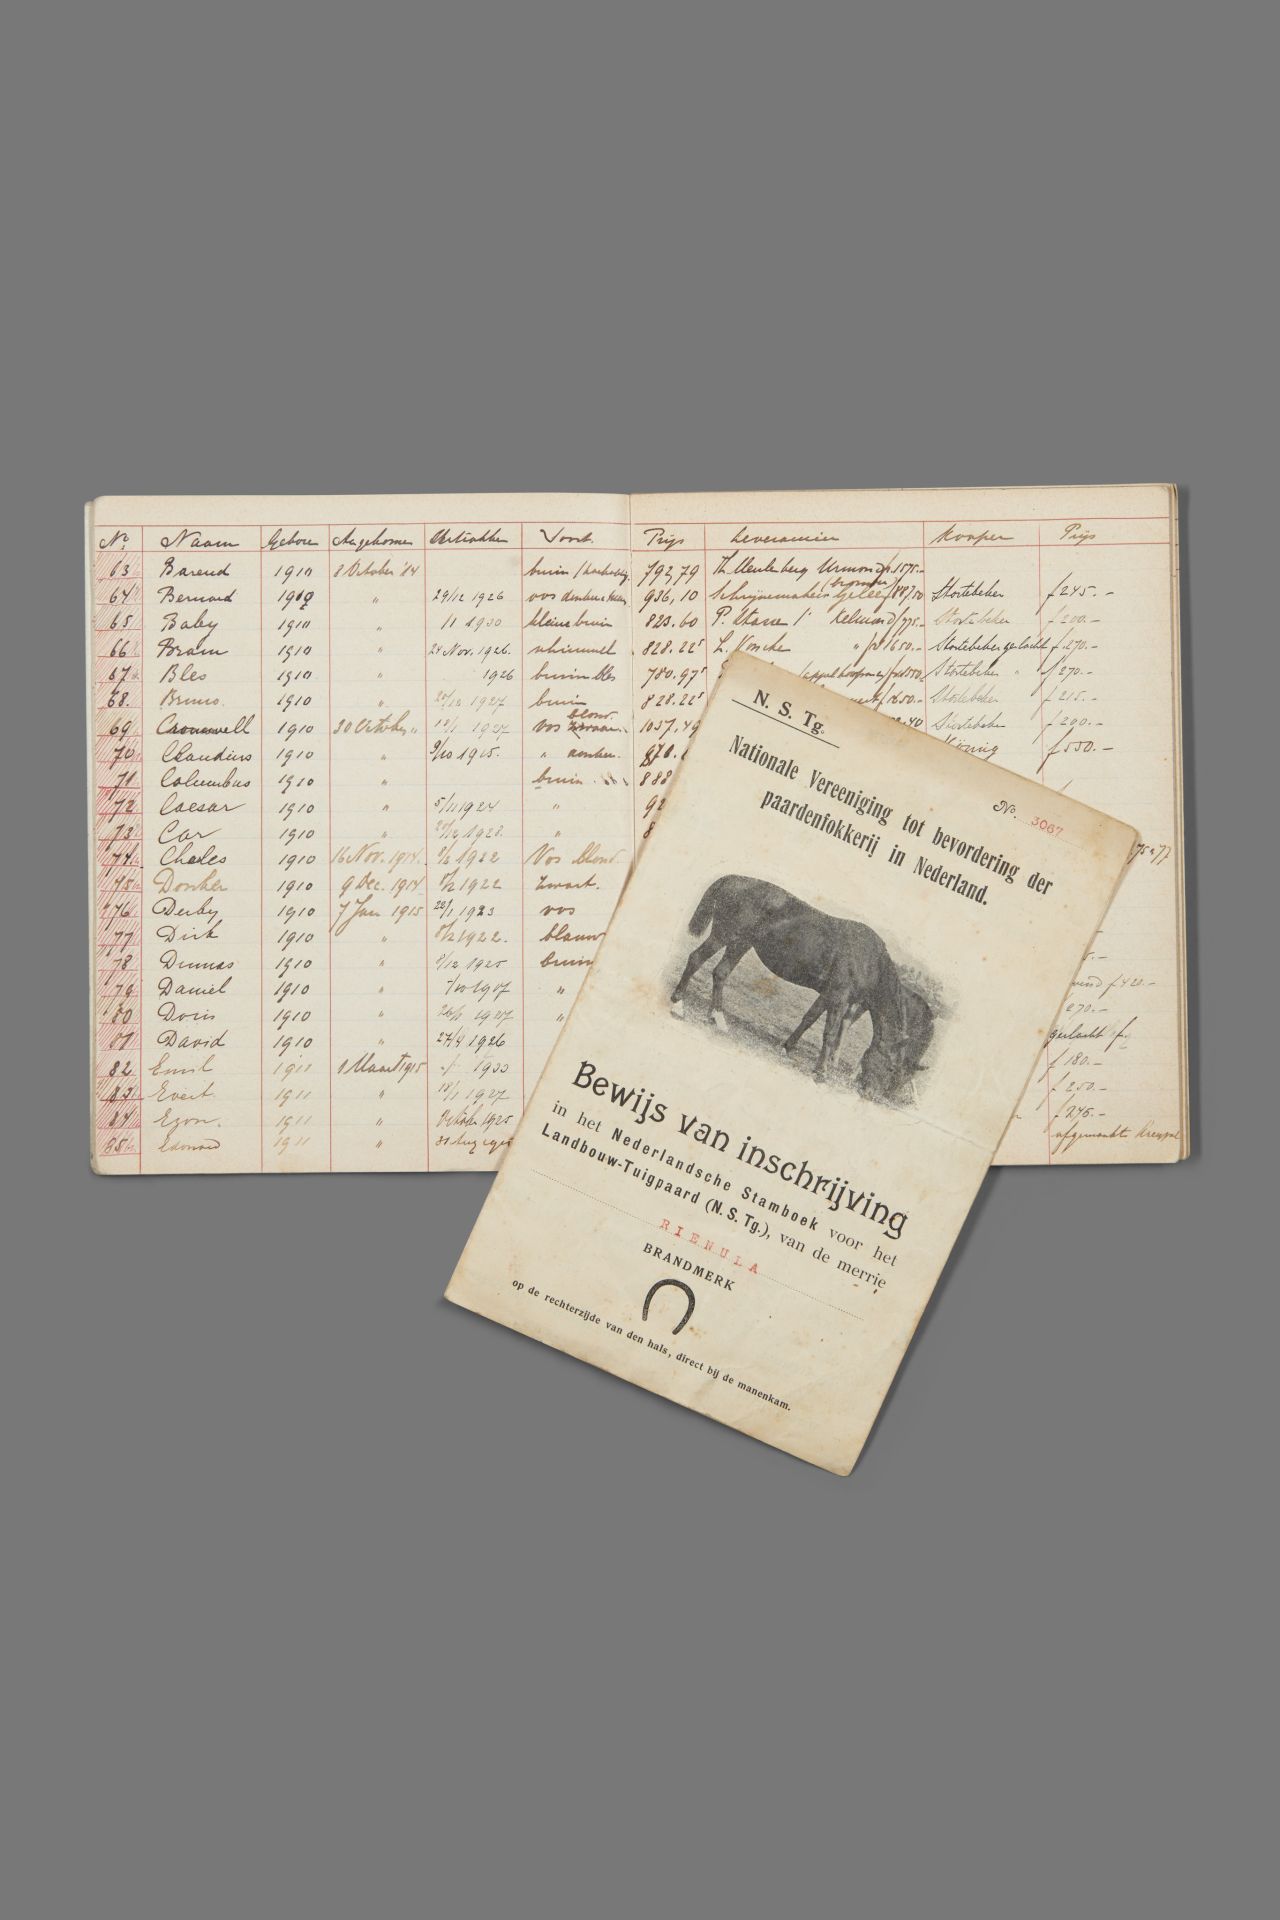 No. Naam Geboren Aangekomen Vertrokken Soort Prijs Leverancier Kooper Prijs
63 Barend 1910 8 October '14 bruin 792,79 Meulenberg Urmond f 1575.-
64 Bernard 1909 " 29/12 1926 vos donkere 936,10 Schrijnemakers Geleen Stortebeker f 245.-
65 Baby 1910 " 1930 kleine bruin 823.60 P. Kelmond f 775.- Stortebeker f 200.-
66 Bram 1910 " 24 Nov. 1926. schimmel 828.22⁵ L. " 1650.- Stortebeker geslacht f 270.-
67 Bles 1910 " 1926 bruin bles 780.97⁵ Stortebeker " f 270.-
68. Bruno. 1910 " 1927 bruin 828.22⁵ Stortebeker f 215.-
69 Cromwell 1910 30 October " 1927 vos blond 1057,49 Stortebeker f 200.-
70 Claudius 1910 " 9/10 1915. " donker. König f 550.-
71 Columbus 1910 " bruin 888
72 Caesar 1910 " 5/11 1924 " 92
73 Car 1910 " 1928. " 8
74 Charles 1910 16 Nov. 1914. 8/2 1922 Vos blond.
75 Donker 1910 9 Dec. 1914 8/2 1922 zwart.
76 Derby 1910 7 Jan 1915 22/1 1923 vos
77 Dirk 1910 " 8/2 1922. blauw
78 Dumas 1910 " 8/12 1925 bruin
79 Daniel 1910 " " f 420.-
80 Doris 1910 " 1927 " 270.-
81 David 1910 " 27/4 1926 geslacht f
82 Emil 1911 1 Maart 1915 1933 f 180.-
83 Evert. 1911 " 18/1 1927 f 250.-
84 Egon. 1911 " October 1925 f 275.-
85 Edmond 1911 " 31 Aug afgemaakt
N. S. Tg.
No. 3067
Nationale Vereeniging tot bevordering der
paardenfokkerij in Nederland.
Bewijs van inschrijving
in het Nederlandsche Stamboek voor het
Landbouw-Tuigpaard (N. S. Tg.), van de merrie
RIENULA
BRANDMERK
op de rechterzijde van den hals, direct bij de manenkam.